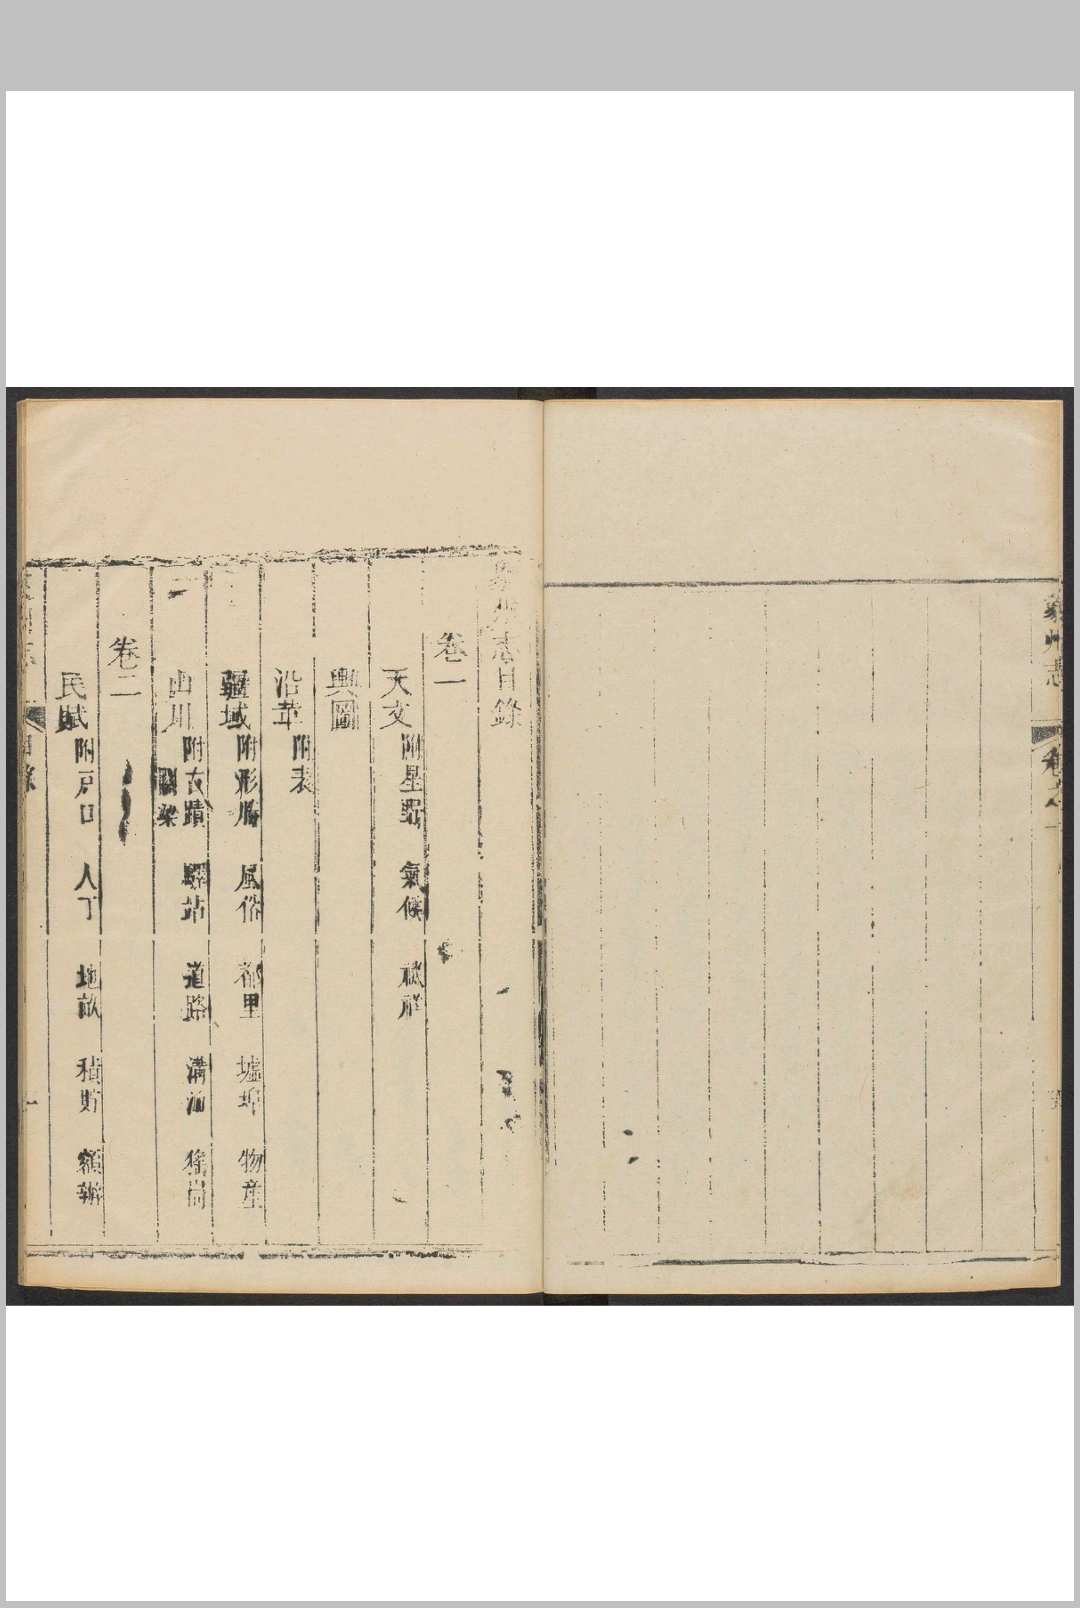 象州志
卷之
象州志目錄
卷一
天文 附星野 氣候 祲祥
輿圖
沿革 附表
疆域 附形勝 風俗 都里 墟埠 物產
山川 附古蹟 驛站 道路 溝洫 猺峝
關梁
卷二
民賦 附戶口 人丁 地畝 積貯 額辦
目錄
一